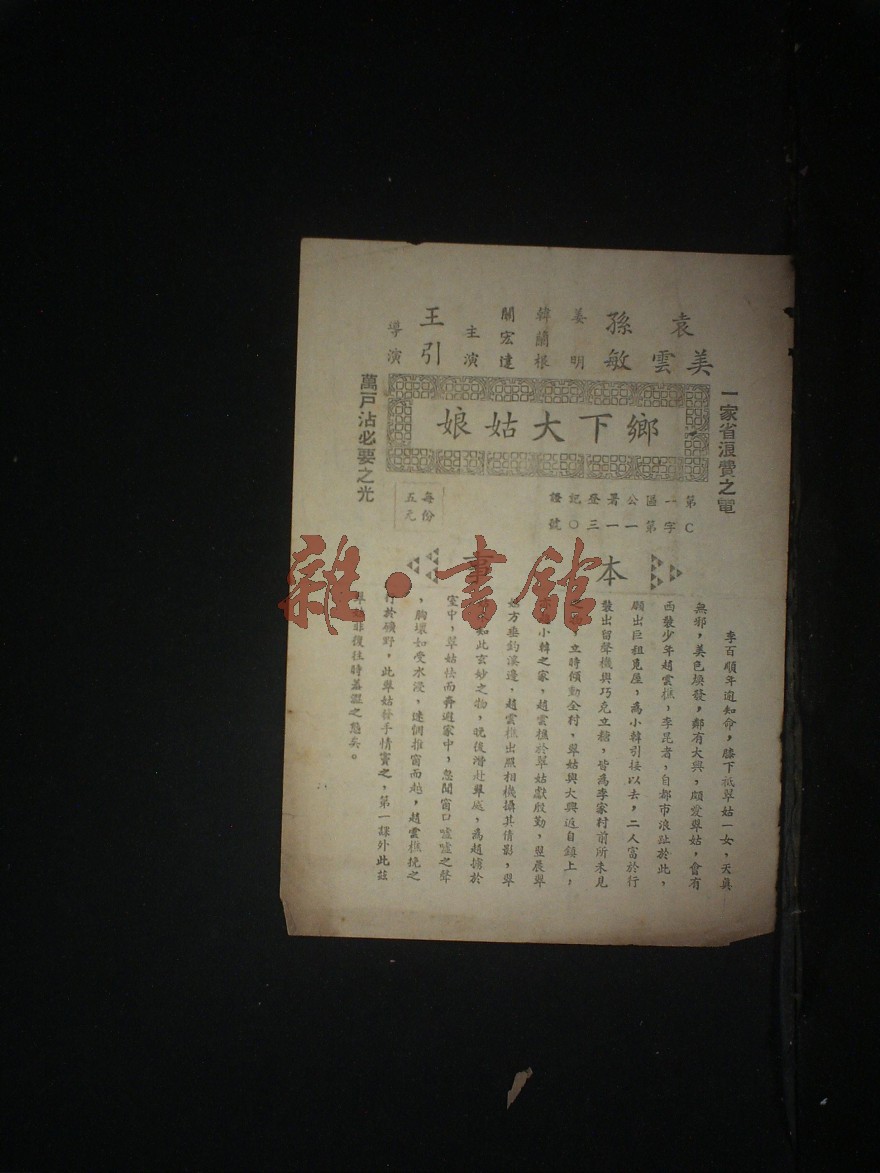 袁美雲
孫敏
姜明
韓蘭根
關宏達
主演
王引
導演
一家省浪費之電
鄉下大姑娘
萬戶沾必要之光
第一區公署登記證
C字第一三〇號
每份五元
本事
雜·書館
李百順年逾知命，膝下祇翠姑一女，天真
無邪，美色煥發，鄰有大興，頗愛翠姑，會有
西裝少年趙雲樵，李昆者，自都市浪趾於此，
願出巨租覓屋，為小韓引接以去，二人富於行
裝出留聲機與巧克立糖，皆為李家村前所未見
，立時傾動全村，翠姑與大興返自鎮上，
小韓之家，趙雲樵於翠姑獻殷勤，翌晨翠
姑方垂釣溪邊，趙雲樵出照相機攝其倩影，翠
如此玄妙之物，晚復潛赴翠處，為趙擄於
室中，翠姑怯而奔避家中，忽聞窗口噓噓之聲
，胸壞如受水浸，速個推窗而越，趙雲樵挽之
行於礦野，此翠姑發手情竇之，第一課外此茲
翠姑非復往時羞澀之態矣。